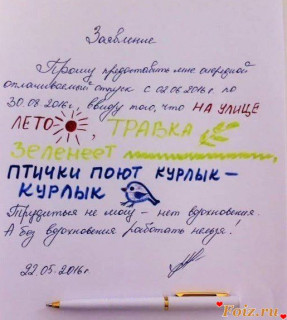 Заявление
Прошу предоставить мне очередной
оплачиваемый отпуск с 02.06.2016г. по
30.08.2016г., ввиду того, что НА УЛИЦЕ
ЛЕТО, ТРАВКА
Зеленеет,
ПТИЧКИ ПОЮТ КУРЛЫК-
КУРЛЫК
Трудиться не могу - нет вдохновения.
А без вдохновения работать нельзя!
22.05.2016г
Foiz.ru